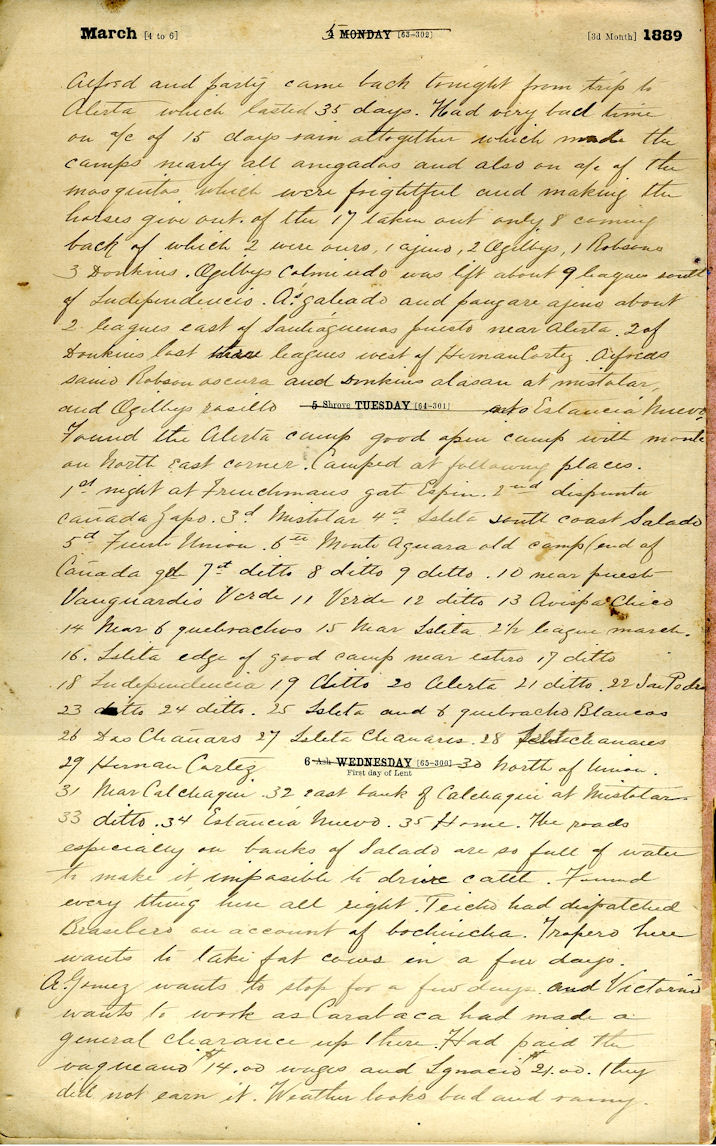 March [4 to 6] 5 4 MONDAY [63-302] [3d Month] 1889
Alford and party came back tonight from trip to
Alerta which lasted 35 days. Had very bad time
on a/c of 15 days rain altogether which made the
camps nearly all anegados and also on a/c of the
mosquitos which were frightful and making the
horses give out. of the 17 taken out only 8 coming
back of which 2 were ours, 1 ajeno, 2 Ogilbys, 1 Robsons
3 Donkins. Ogilbys Colmiudo was left about 9 leagues south
of Independencio. A's gateado and pangare ajeno about
2 leagues east of Santiaguenos puesto near Alerta. 2 of
Donkins lost three leagues west of Hernan Cortez. Alfreds
saino Robson oscura and Donkins alasan at mistolar,
and Ogilbys rosillo 5 Shrove TUESDAY [64-301] into Estancia Nuevo
Found the Alerta camp good open camp with monte
on North East corner. Camped at following places.
1st night at Frenchmans gate Espin. 2nd dispunta
cañada Zapo. 3d Mistolar 4th Isleta south coast Salado
5th Fuerte Union. 6th Monte Aguara old camp (end of
Cañada 7th ditto 8 ditto 9 ditto. 10 near puesto
Vanguardio Verde 11 Verde 12 ditto 13 Avispa Chico
14 Near 6 quebrachos 15 Near Isleta 2½ league march.
16. Isleta edge of good camp near estero 17 ditto
18 Independencia 19 Ditto 20 Alerta 21 ditto. 22 San Pedro
23 ditto 24 ditto. 25 Isleta and 6 quebracho Blancos
26 Dos Chañars 27 Isleta Chanares. 28 Isleta chanares
29 Hernan Cortez 6 Ash WEDNESDAY [65-300] 30 North of Union.
First day of Lent
31 Near Calchaqui. 32 east bank of Calchaqui at Mistolar
33 ditto. 34 Estancia Nuevo. 35 Home. The roads
especially on banks of Salado are so full of water
to make it imposible to drive cattle. Found
every thing here all right. Teicho had dispatched
Brasilero on account of bochincha. Tropero here
wants to take fat cows in a few days.
A. Gomez wants to stop for a few days and Victorino
wants to work as Carabaca had made a
general clearance up there. Had paid the
vaqueano $14.00 wages and Ignacio $21.00. They
did not earn it. Weather looks bad and rainy.